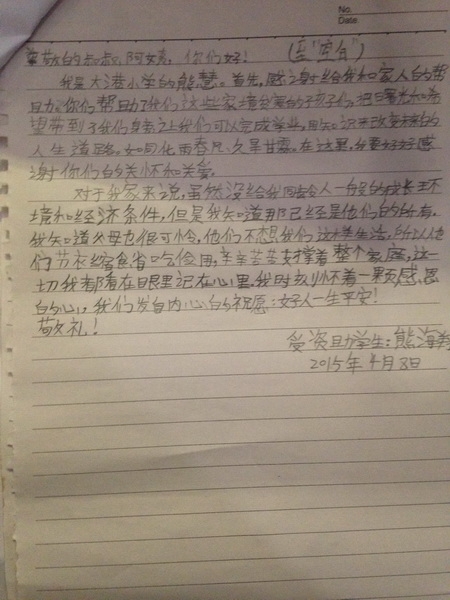 No.
Date
尊敬的叔叔、阿姨,你们好!
我是大港小学的熊慧。首先,感谢给我和家人的帮
助,你们帮助了我们这些家境贫寒的孩子们,把曙光和希
望带到了我们身上,让我们可以完成学业,用知识来改变未来的
人生道路。如同化雨春风、久旱甘露。在这里,我要好好感
谢你们的关怀和关爱。
对于我家来说,虽然没给我令人的成长环
境和经济条件,但是我知道那已经是他们的所有。
我知道父母也很可怜,他们不想我们这样生活,所以他
们节衣缩食省吃俭用,辛辛苦苦支撑着整个家庭,这一
切我都随在眼里记在心里,我时刻怀着一颗感恩
的心,我们发自内心的祝愿:好人一生平安!
敬礼!
受资助学生:熊海
2015年4月3日